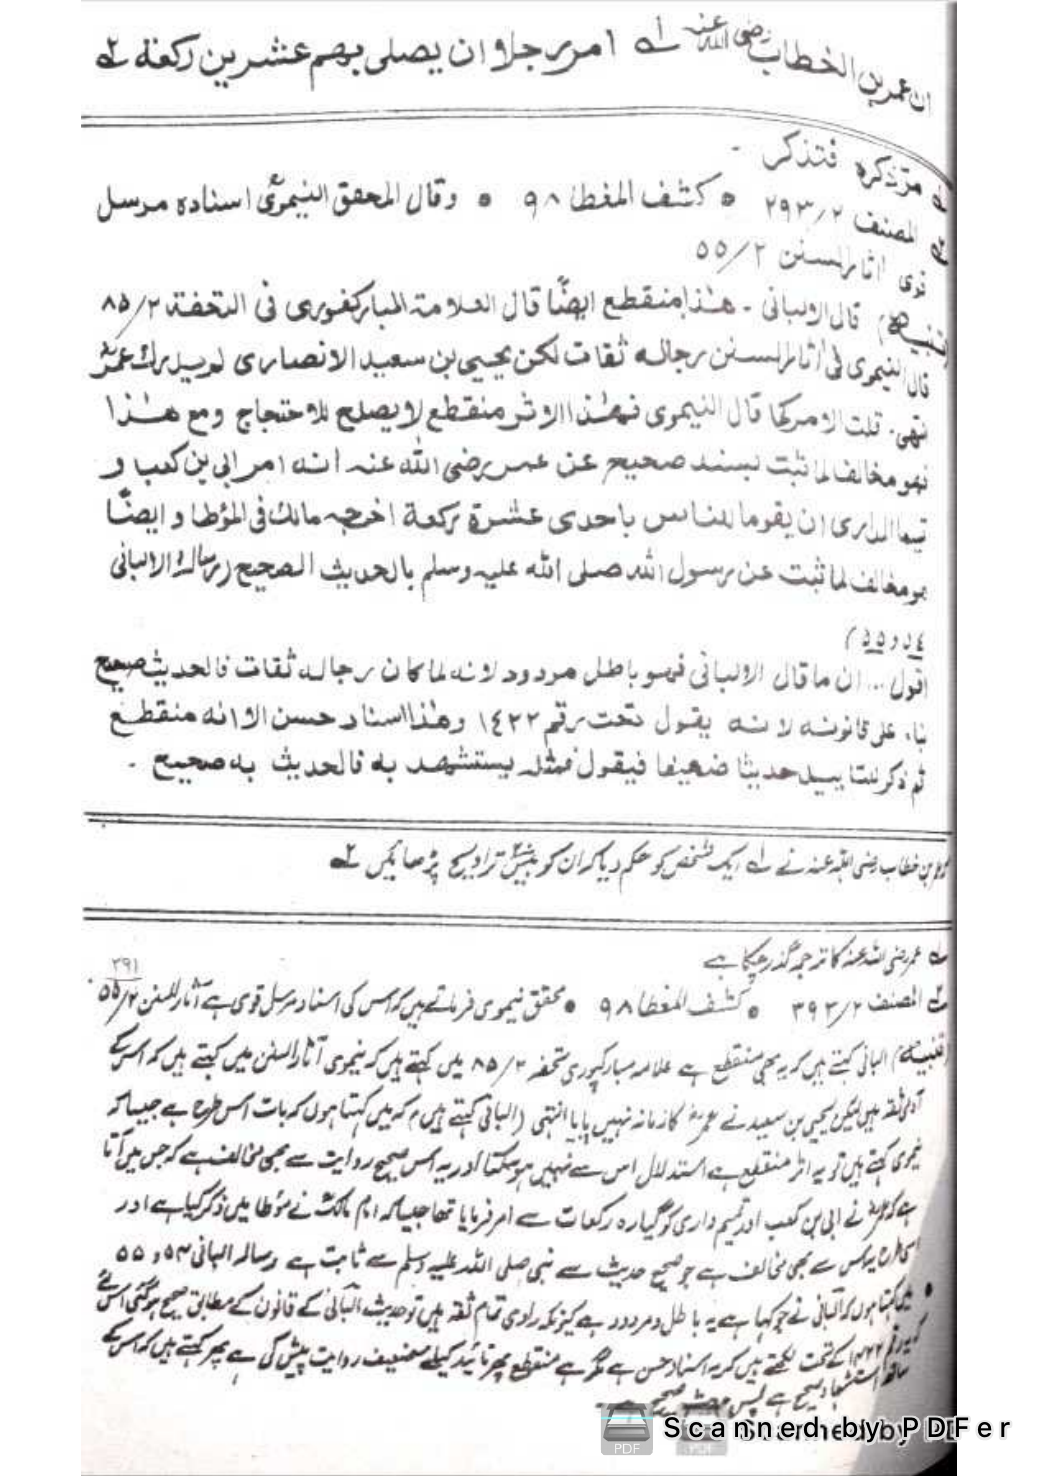 ان عمر بن الخطاب رضی اللہ عنہ لے امر رجلا وان یصلی بہم عشرین رکعة لے
مر ذکرہ فتذکر -
المصنف ۲/۲۹۳ ٥ کشف المغطا ۹۸ ٥ وقال المحقق النیموی اسنادہ مرسل
قوی اثار السنن ۲/۵۵
(تنبیہ) قال الالبانی - ھذا منقطع ایضًا قال العلامة المبارکفوری فی التحفة ۲/۸۵
قال النیموی فی اثار السنن رجالہ ثقات لکن یحیی بن سعید الانصاری لم یدرک عمر
انتہی. قلت الامر کما قال النیموی فھذا الاثر منقطع لا یصلح للاحتجاج ومع ھذا
فھو مخالف لما ثبت بسند صحیح عن عمر رضی اللہ عنہ انہ امر ابی بن کعب و
تمیما الداری ان یقوما للناس باحدی عشرة رکعة اخرجہ مالک فی المؤطا وایضًا
ھو مخالف لما ثبت عن رسول اللہ صلی اللہ علیہ وسلم بالحدیث الصحیح (رسالة الالبانی
٥٤ و ٥٥)
اقول... ان ما قال الالبانی فھو باطل مردود لانہ لما کان رجالہ ثقات فالحدیث صحیح
بناء علی قانونہ لانہ یقول تحت رقم ۱٤۲۲ وھذا اسناد حسن الا انہ منقطع
ثم ذکر للتایید حدیثا ضعیفا فیقول فمثلہ یستشھد بہ فالحدیث بہ صحیح .
عمر بن خطاب رضی اللہ عنہ نے لے ایک شخص کو حکم دیا کہ ان کو بیس تراویح پڑھائیں لے
لے عمر رضی اللہ عنہ کا ترجمہ گذر چکا ہے
۳۹۱
المصنف ۲/۳۹۳ ٥ کشف المغطا ۹۸ ٥ محقق نیموی فرماتے ہیں کہ اس کی اسناد مرسل قوی ہے آثار السنن ۲/۵۵
(تنبیہ) البانی کہتے ہیں کہ یہ بھی منقطع ہے علامہ مبارکپوری تحفہ ۲/۸۵ میں کہتے ہیں کہ نیموی آثار السنن میں کہتے ہیں کہ اس کے
آدمی ثقہ ہیں لیکن یحیی بن سعید نے عمر کا زمانہ نہیں پایا انتہی (البانی کہتے ہیں) کہ میں کہتا ہوں کہ بات اس طرح ہے جیسا کہ
نیموی کہتے ہیں تو یہ اثر منقطع ہے استدلال اس سے نہیں ہو سکتا اور یہ اس صحیح روایت سے بھی مخالف ہے کہ جس میں آتا
ہے کہ عمر نے ابی بن کعب اور تمیم داری کو گیارہ رکعات سے امر فرمایا تھا جیسا کہ امام مالک نے مؤطا میں ذکر کیا ہے اور
اسی طرح یہ اس سے بھی مخالف ہے جو صحیح حدیث سے نبی صلی اللہ علیہ وسلم سے ثابت ہے رسالہ البانی ۵۴ و ۵۵
میں کہتا ہوں کہ البانی نے جو کہا ہے یہ باطل و مردود ہے کیونکہ راوی تمام ثقہ ہیں تو حدیث البانی کے قانون کے مطابق صحیح ہو گئی اس لئے
کہ یہ رقم ۱۴۲۲ کے تحت لکھتے ہیں کہ یہ اسناد حسن ہے مگر ہے منقطع پھر تائید کیلئے ضعیف روایت پیش کی ہے پھر کہتے ہیں کہ اس کے
ساتھ استشہاد صحیح ہے پس
Scanned by PDFer